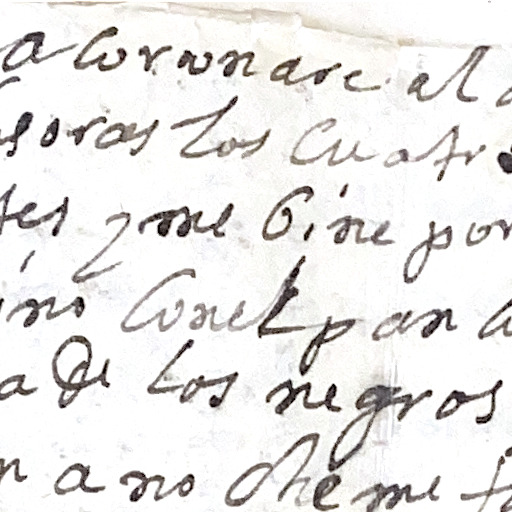 a coronare al
soras los cuatro
tes y me bine por
ino con el pan
a de los negros
mano che me